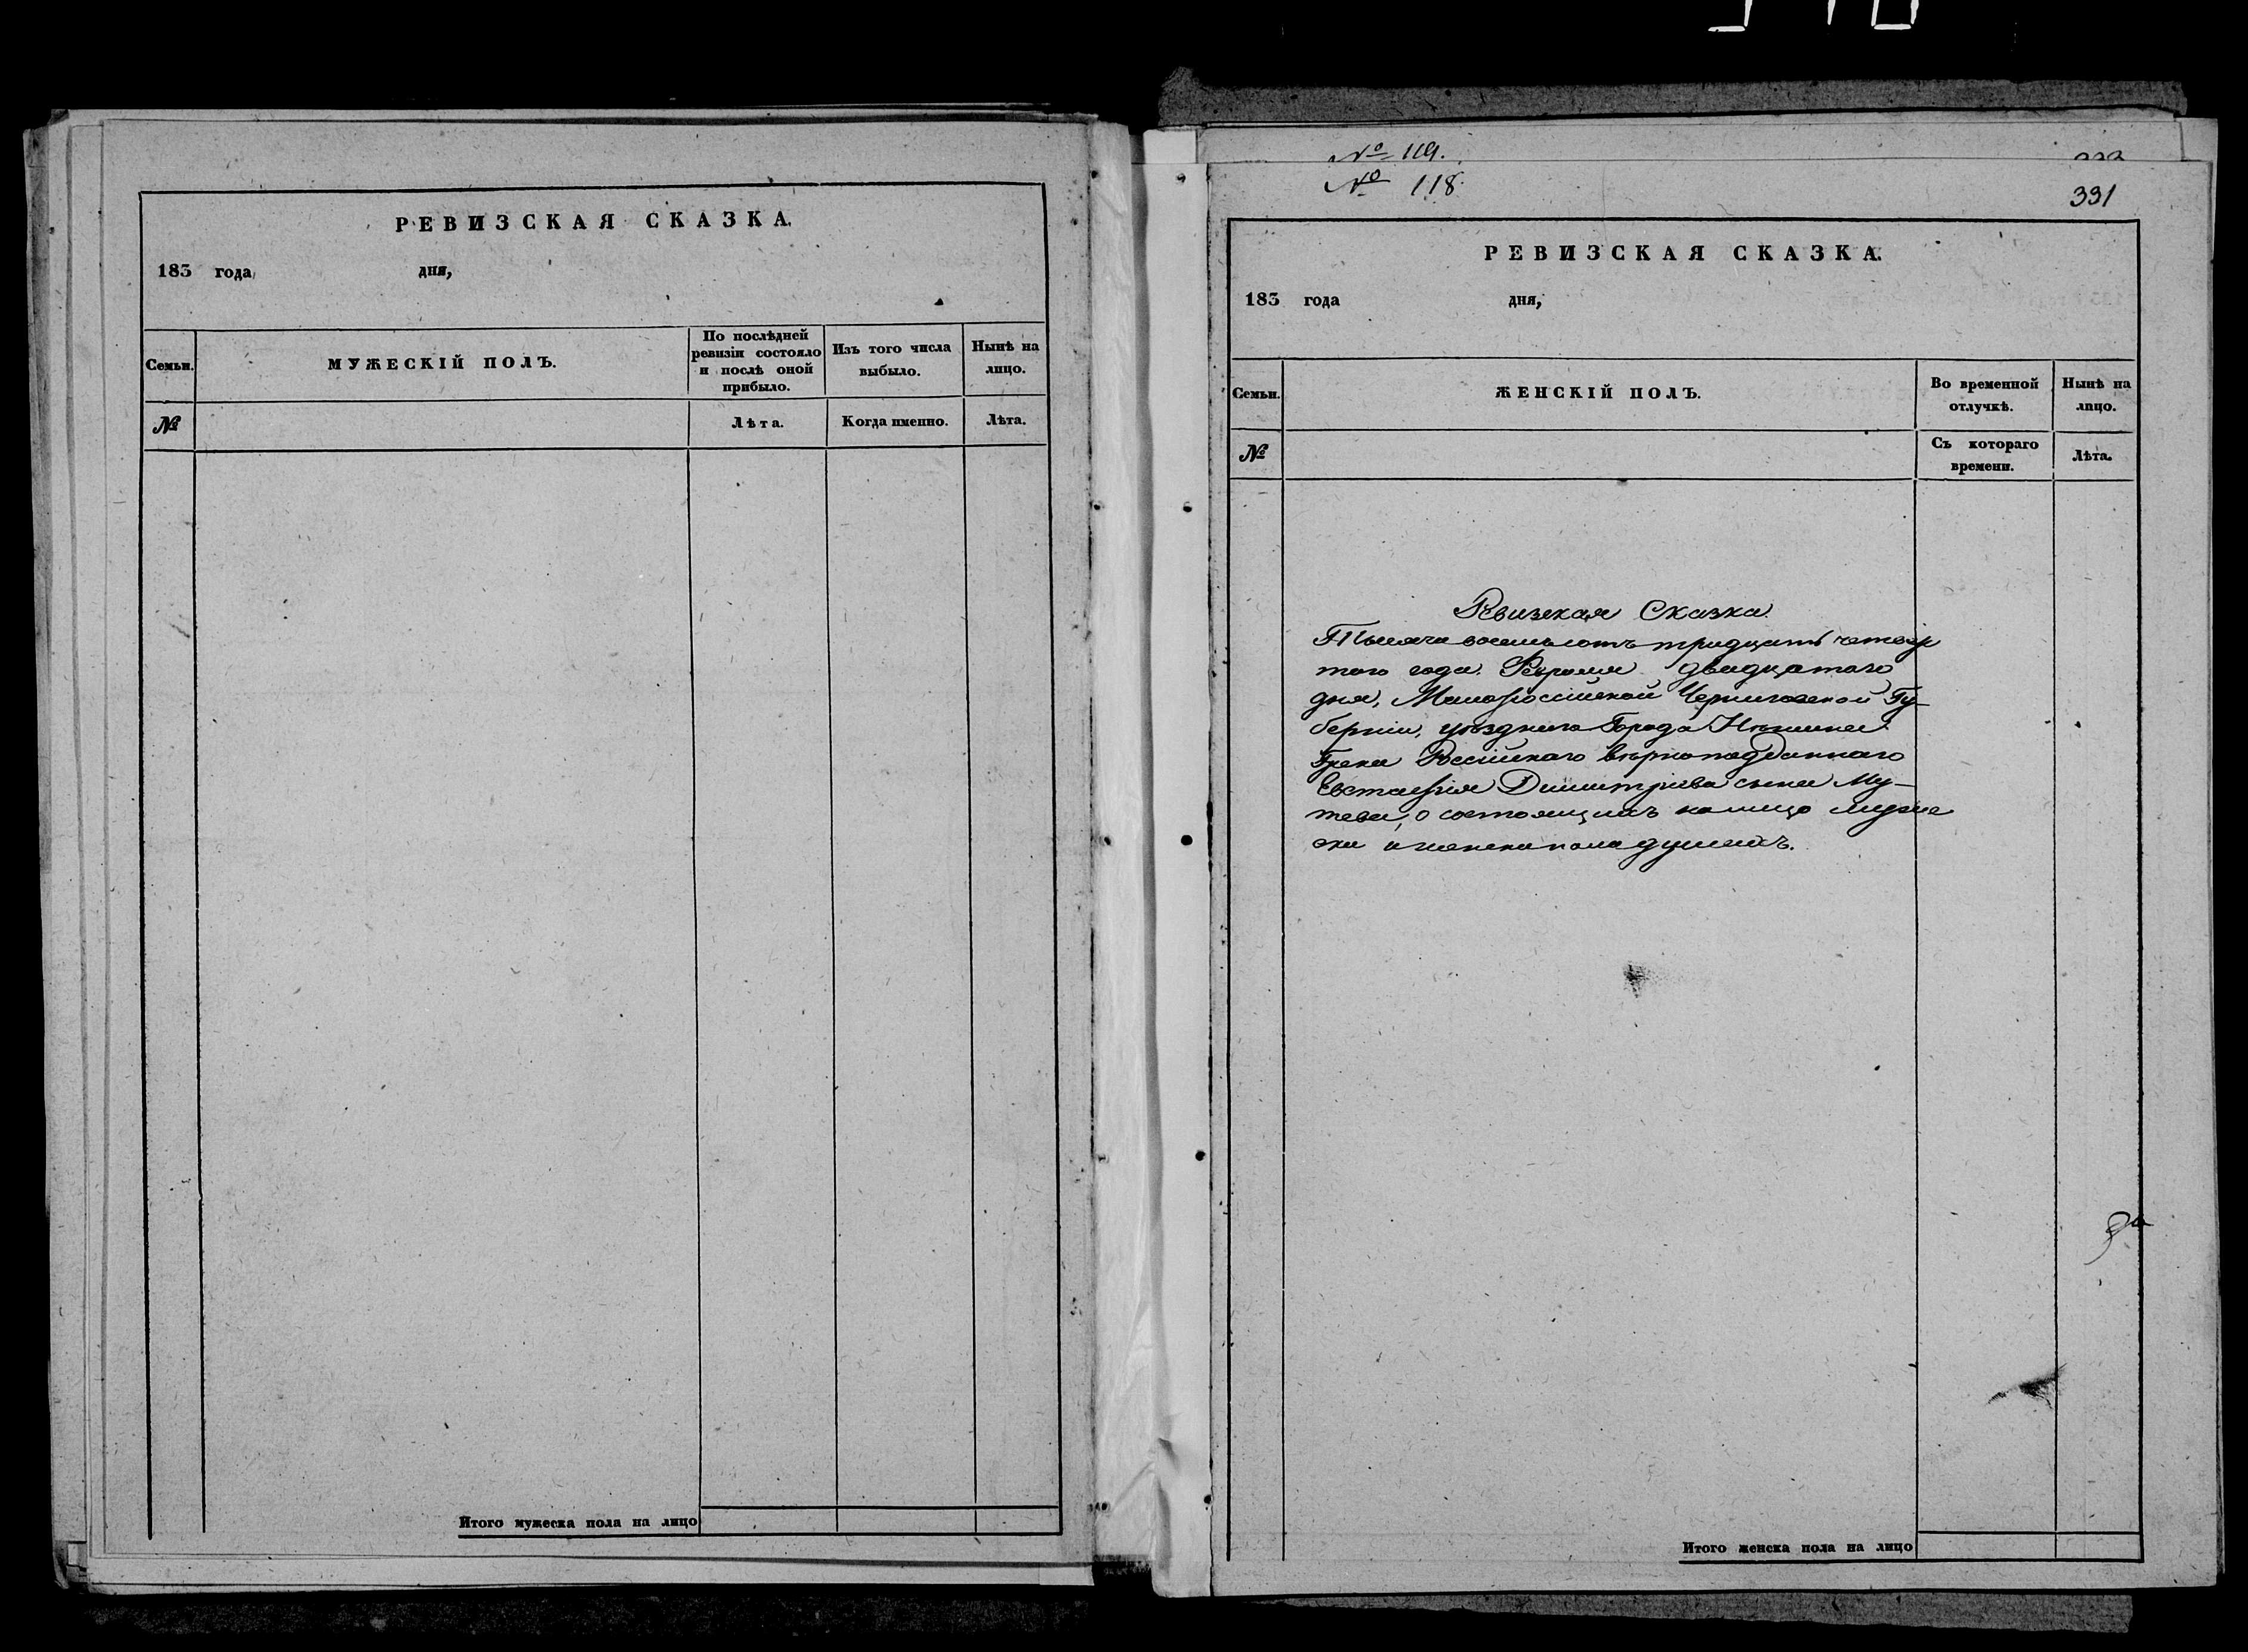 РЕВИЗСКАЯ СКАЗКА.
183 года дня,
Семьи.
МУЖЕСКІЙ ПОЛЪ.
По послѣдней
ревизіи состояло
и послѣ оной
прибыло.
Изъ того числа
выбыло.
Нынѣ на
лицо.
№
Лѣта.
Когда именно.
Лѣта.
Итого мужеска пола на лицо
№ 119.
№ 118.
331
РЕВИЗСКАЯ СКАЗКА.
183 года дня,
Семьи.
ЖЕНСКІЙ ПОЛЪ.
Во временной
отлучкѣ.
Нынѣ на
лицо.
№
Съ котораго
времени.
Лѣта.
Ревизская Сказка
Тысяча восемьсотъ тридцать четвер
таго года. Февраля двадцатаго
дня, Малороссійской Черниговской Гу-
берніи, уѣзднаго Города Нѣжина
Грека Россійскаго вѣрноподданнаго
Евстафія Димитріева сына Му-
тева, о состоящихъ налицо мужес
ка и женска пола душахъ.
Итого женска пола на лицо